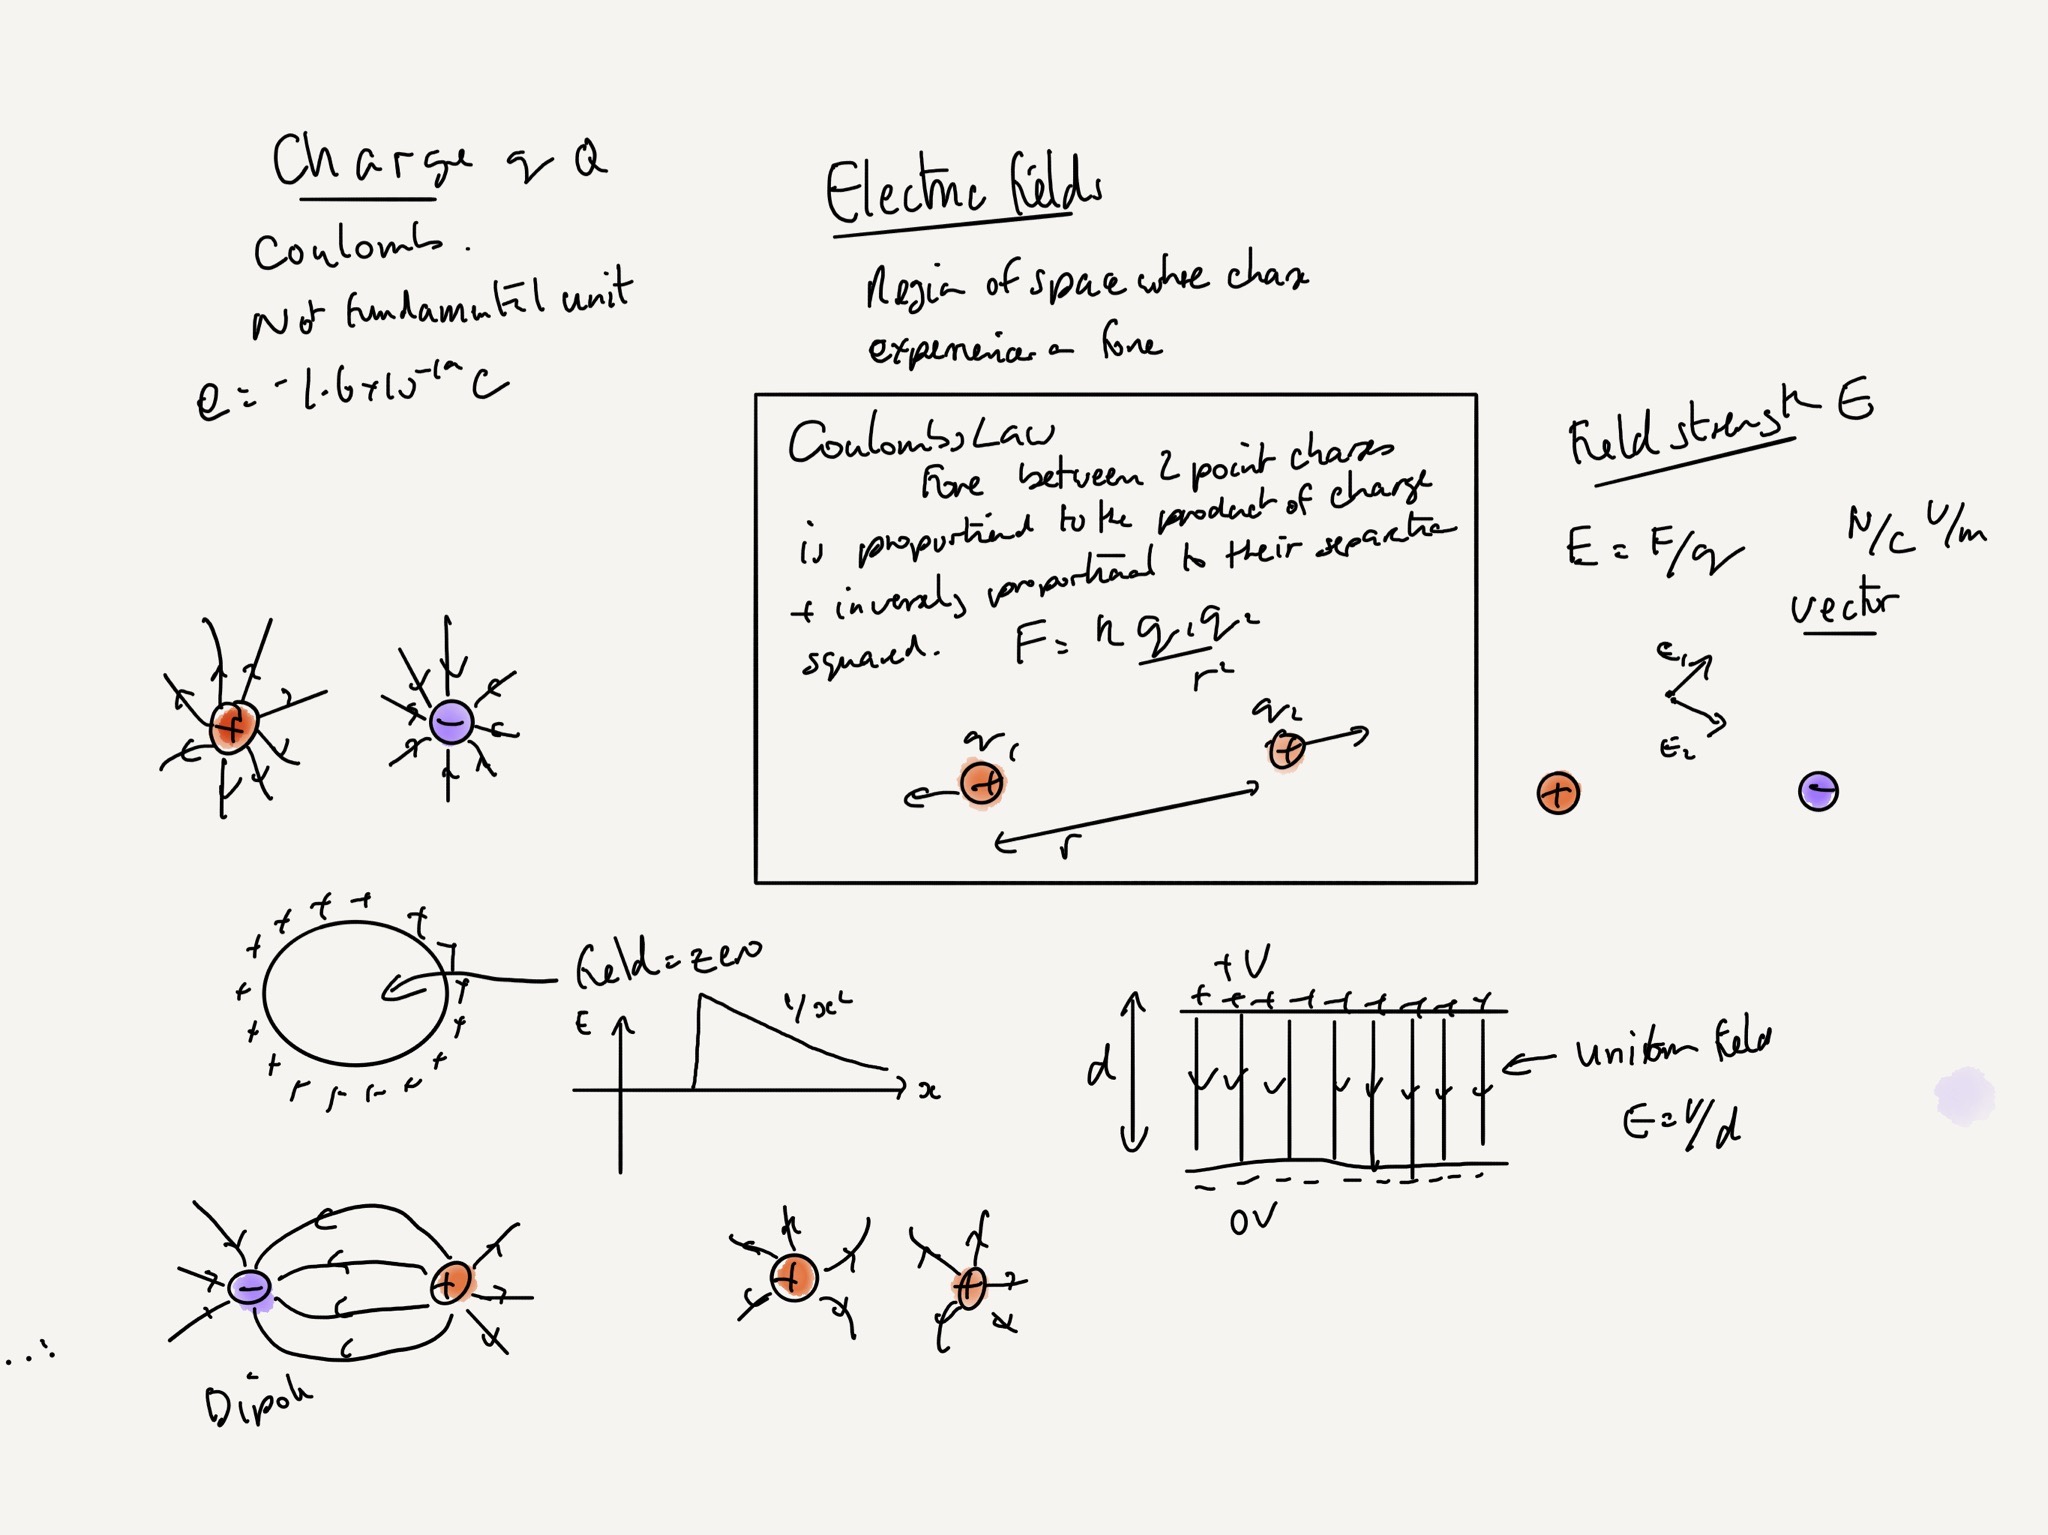 Charge q Q
Coulombs.
Not fundamental unit
e = -1.6×10⁻¹⁹ C
Electric fields
Region of space where charge
experiences a force
Coulombs Law
Force between 2 point charges
is proportional to the product of charge
+ inversely proportional to their separation
squared.
F = k q₁q₂
r²
q₁
q₂
+
+
r
Field strength E
E = F/q
N/C V/m
vector
E₁
E₂
+
-
+
-
+ + + +
Field = zero
E
1/x²
x
+V
+ + + + + + + + +
d
uniform field
E = V/d
- - - - - - - - -
0V
-
+
Dipole
+
+